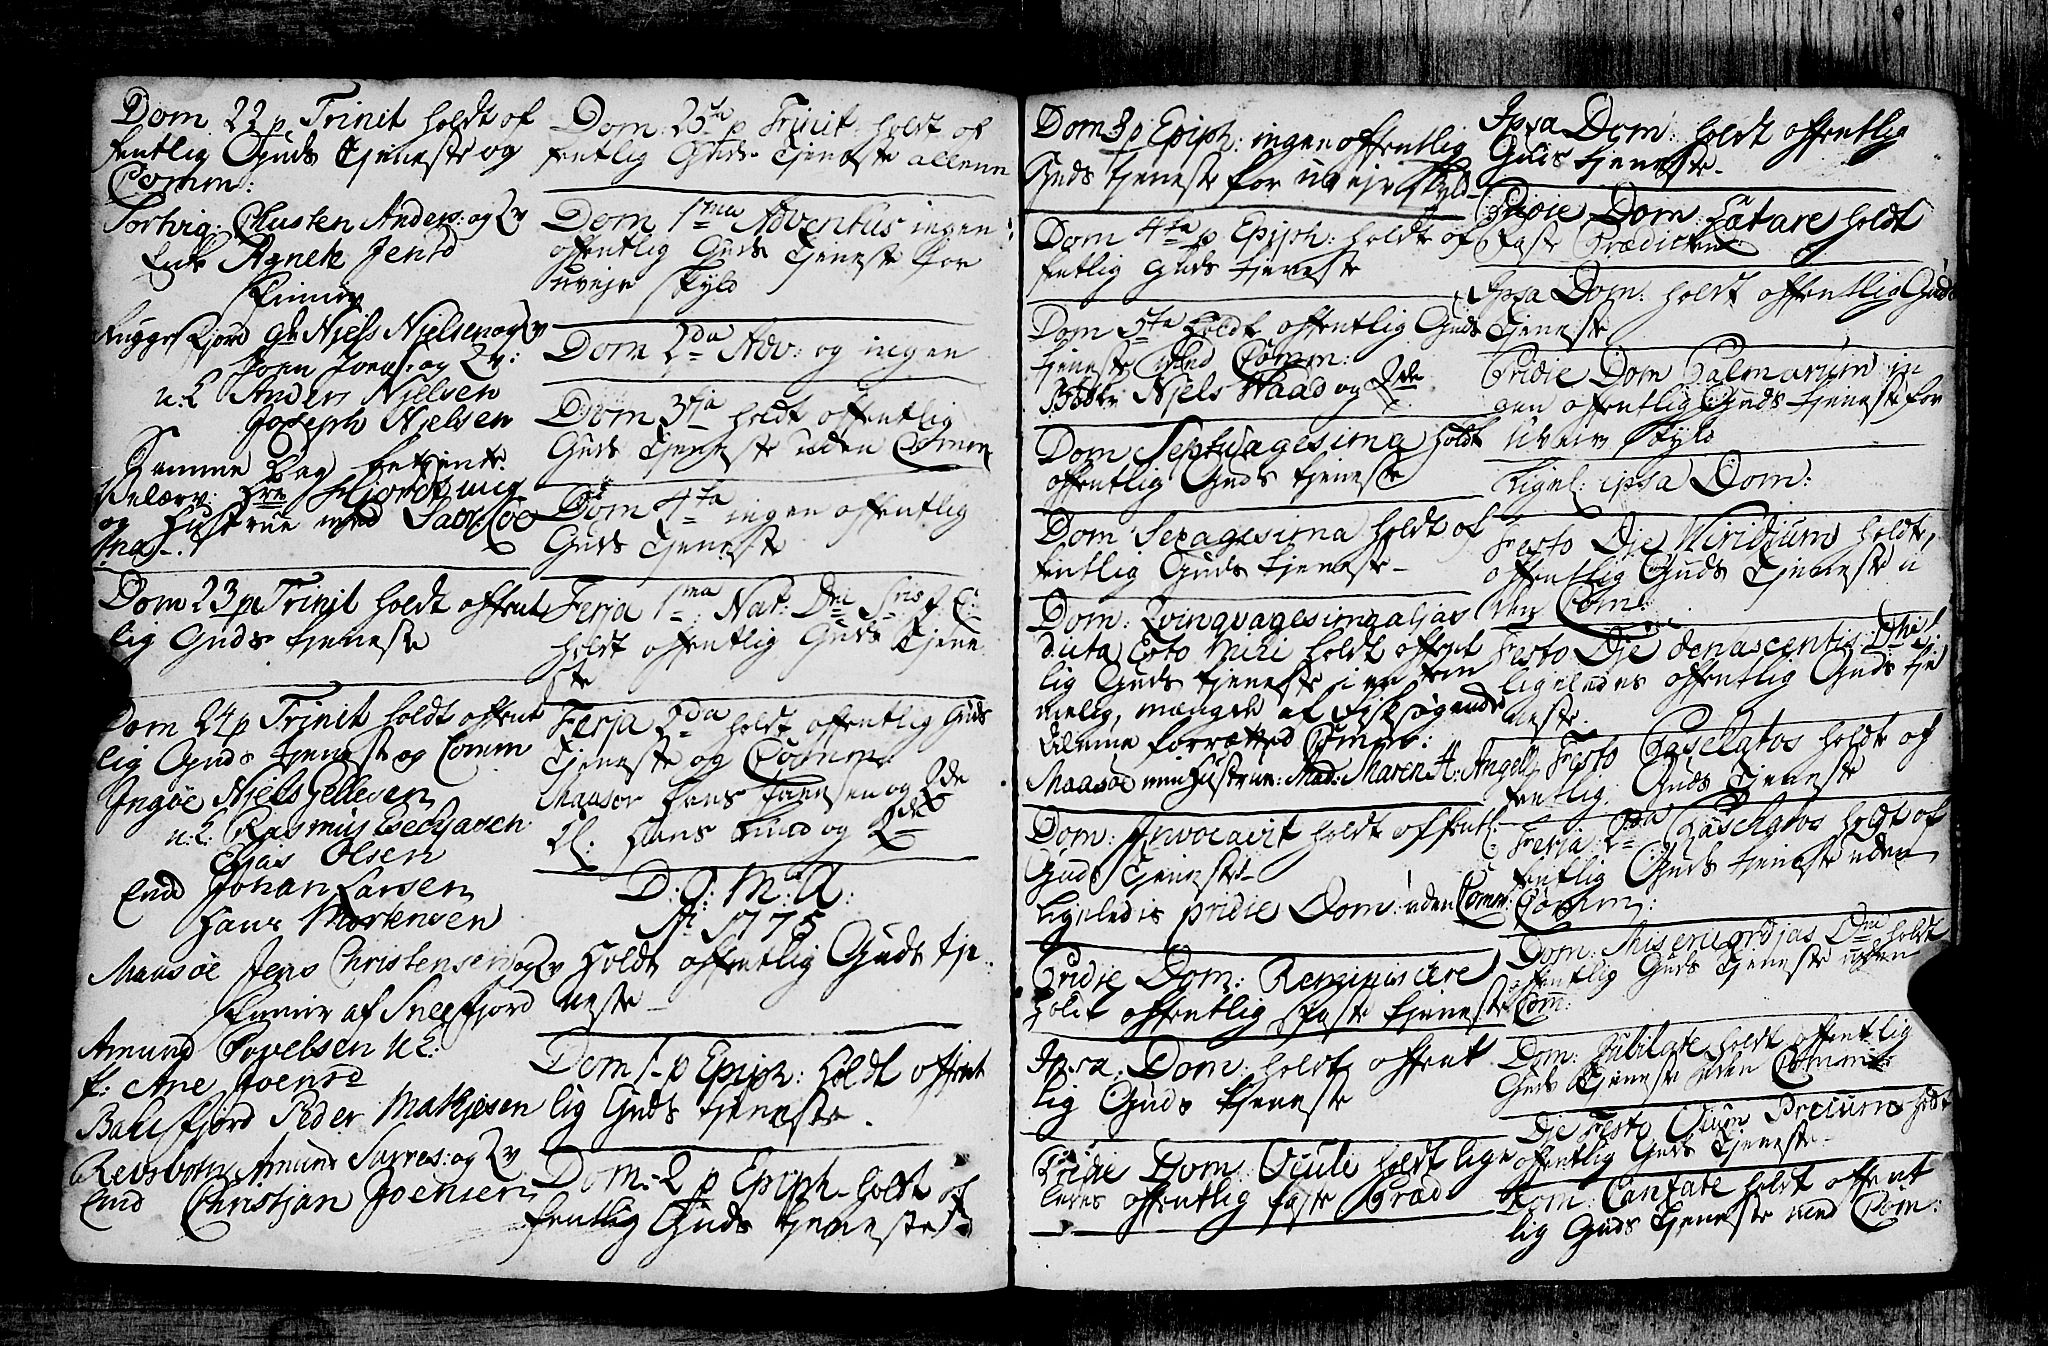 Dom 22 p Trinit holdt of
fentlig Guds Tjeneste og
Comm:
Christen Anders: og Qv
Enk Agnete Jensd
Finner
Niels Nielsen og Qv
Joen Jons: og Qv:
u: L Anders Nielsen
Joseph Nielsen
Samme Dag betjente
Hre Hjorth mig
og Hustrue med
Dom 23 p Trinit holdt offent
lig Guds tjeneste
Dom 24 p Trinit holdt offent
lig Guds tjeneste og Comm
Ingöe Njels Pedersen
u: L: Rasmus Zechariasen
Elias Olsen
End Johan Larsen
Hans Mortensen
Maasöe Jens Christensen og Qv
Finner af Sneefjord
Amund Povelsen u L:
f: Ane Joensd
Bakkefjord Peder Mathjesen
Revsbotn Amund Sarres: og Qv
End Christjan Joensen
Dom: 25te p Trinit holdt of
fentlig Guds Tjeneste allene
Dom 1ma Adventus ingen
offentlig Guds Tjeneste for
uvejr skyld
Dom 2da Adv: og ingen
Dom 3tja holdt offentlig
Guds Tjeneste uden Comm
Dom 4ta ingen offentlig
Guds Tjeneste
Ferja 1ma Nat: Dni
holdt offentlig Guds Tjene
ste
Ferja 2da holdt offentlig Guds
Tjeneste og Comm:
Maasöe Hans Hansen og Qde
Hans Lund og Qde
D: O: M: A:
A: 1775
Holdt offentlig Guds tje
neste
Dom 1 p Epiph: holdt offent
lig Guds tjeneste.
Dom: 2 p Epiph holdt of
fentlig Guds tjeneste
Dom 3 p Epiph: ingen offentlig
Guds tjeneste for uvejr skyld
Dom 4ta p Epiph: holdt of
fentlig Guds tjeneste
Dom 5ta holdt offentlig Guds
tjeneste med Comm:
Niels Waad og Qde
Dom Septuagesima holdt
offentlig Guds tjeneste
Dom Sexagesima holdt of
fentlig Guds tjeneste
Dom: Qvinqvagesima aljas
dicta Esto Mihi holdt offent
lig Guds tjeneste i en tem
melig mængde af Fisk søgende
Almue forrætted Comm:
Maasöe min Hustrue: Mad: Maren H: Angell
Dom: Invocavit holdt offentl:
Guds Tjeneste
ligeledes pridie Dom: uden Comm:
Pridie Dom: Reminiscere
holdt offentlig faste tjeneste
Ipsa Dom: holdt offent
lig Guds tjeneste
Pridie Dom: Oculi holdt lige
ledes offentlig faste Præd
Ipsa Dom: holdt offentlig
Guds tjeneste
Pridie Dom: Lætare holdt
faste Prædicken
Ipsa Dom: holdt offentlig Guds
Tjeneste
Pridie Dom Palmarum in
gen offentlig Guds tjeneste for
uvejr skyld
Ligel: ipsa Dom:
Festo Dje Viridium holdt
offentlig Guds Tjeneste u
den Comm:
Festo Dje
ligeledes offentlig Guds tje
neste.
Festo Paschatos holdt of
fentlig Guds Tjeneste
Ferja 2da Paschatos holdt of
fentlig Guds tjeneste uden
Comm:
Dom: Misericordjas Dni holdt
offentlig Guds Tjeneste uden
Comm:
Dom: Jubilate holdt offentlig
Guds Tjeneste uden Comm:
Dje Festo Precum holdt
offentlig Guds Tjeneste
Dom: Cantate holdt offent
lig Guds tjeneste med Com: